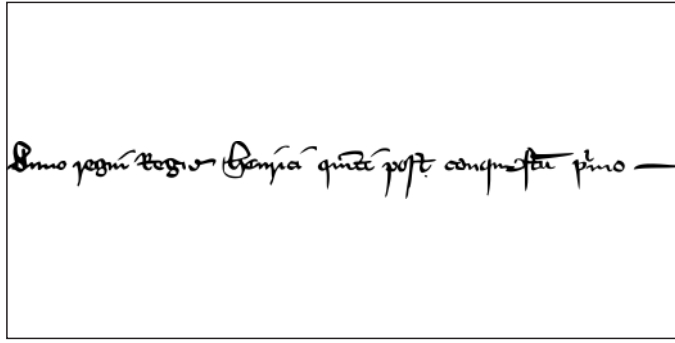 Anno regni Regis Henrici quinti post conquestu pimo